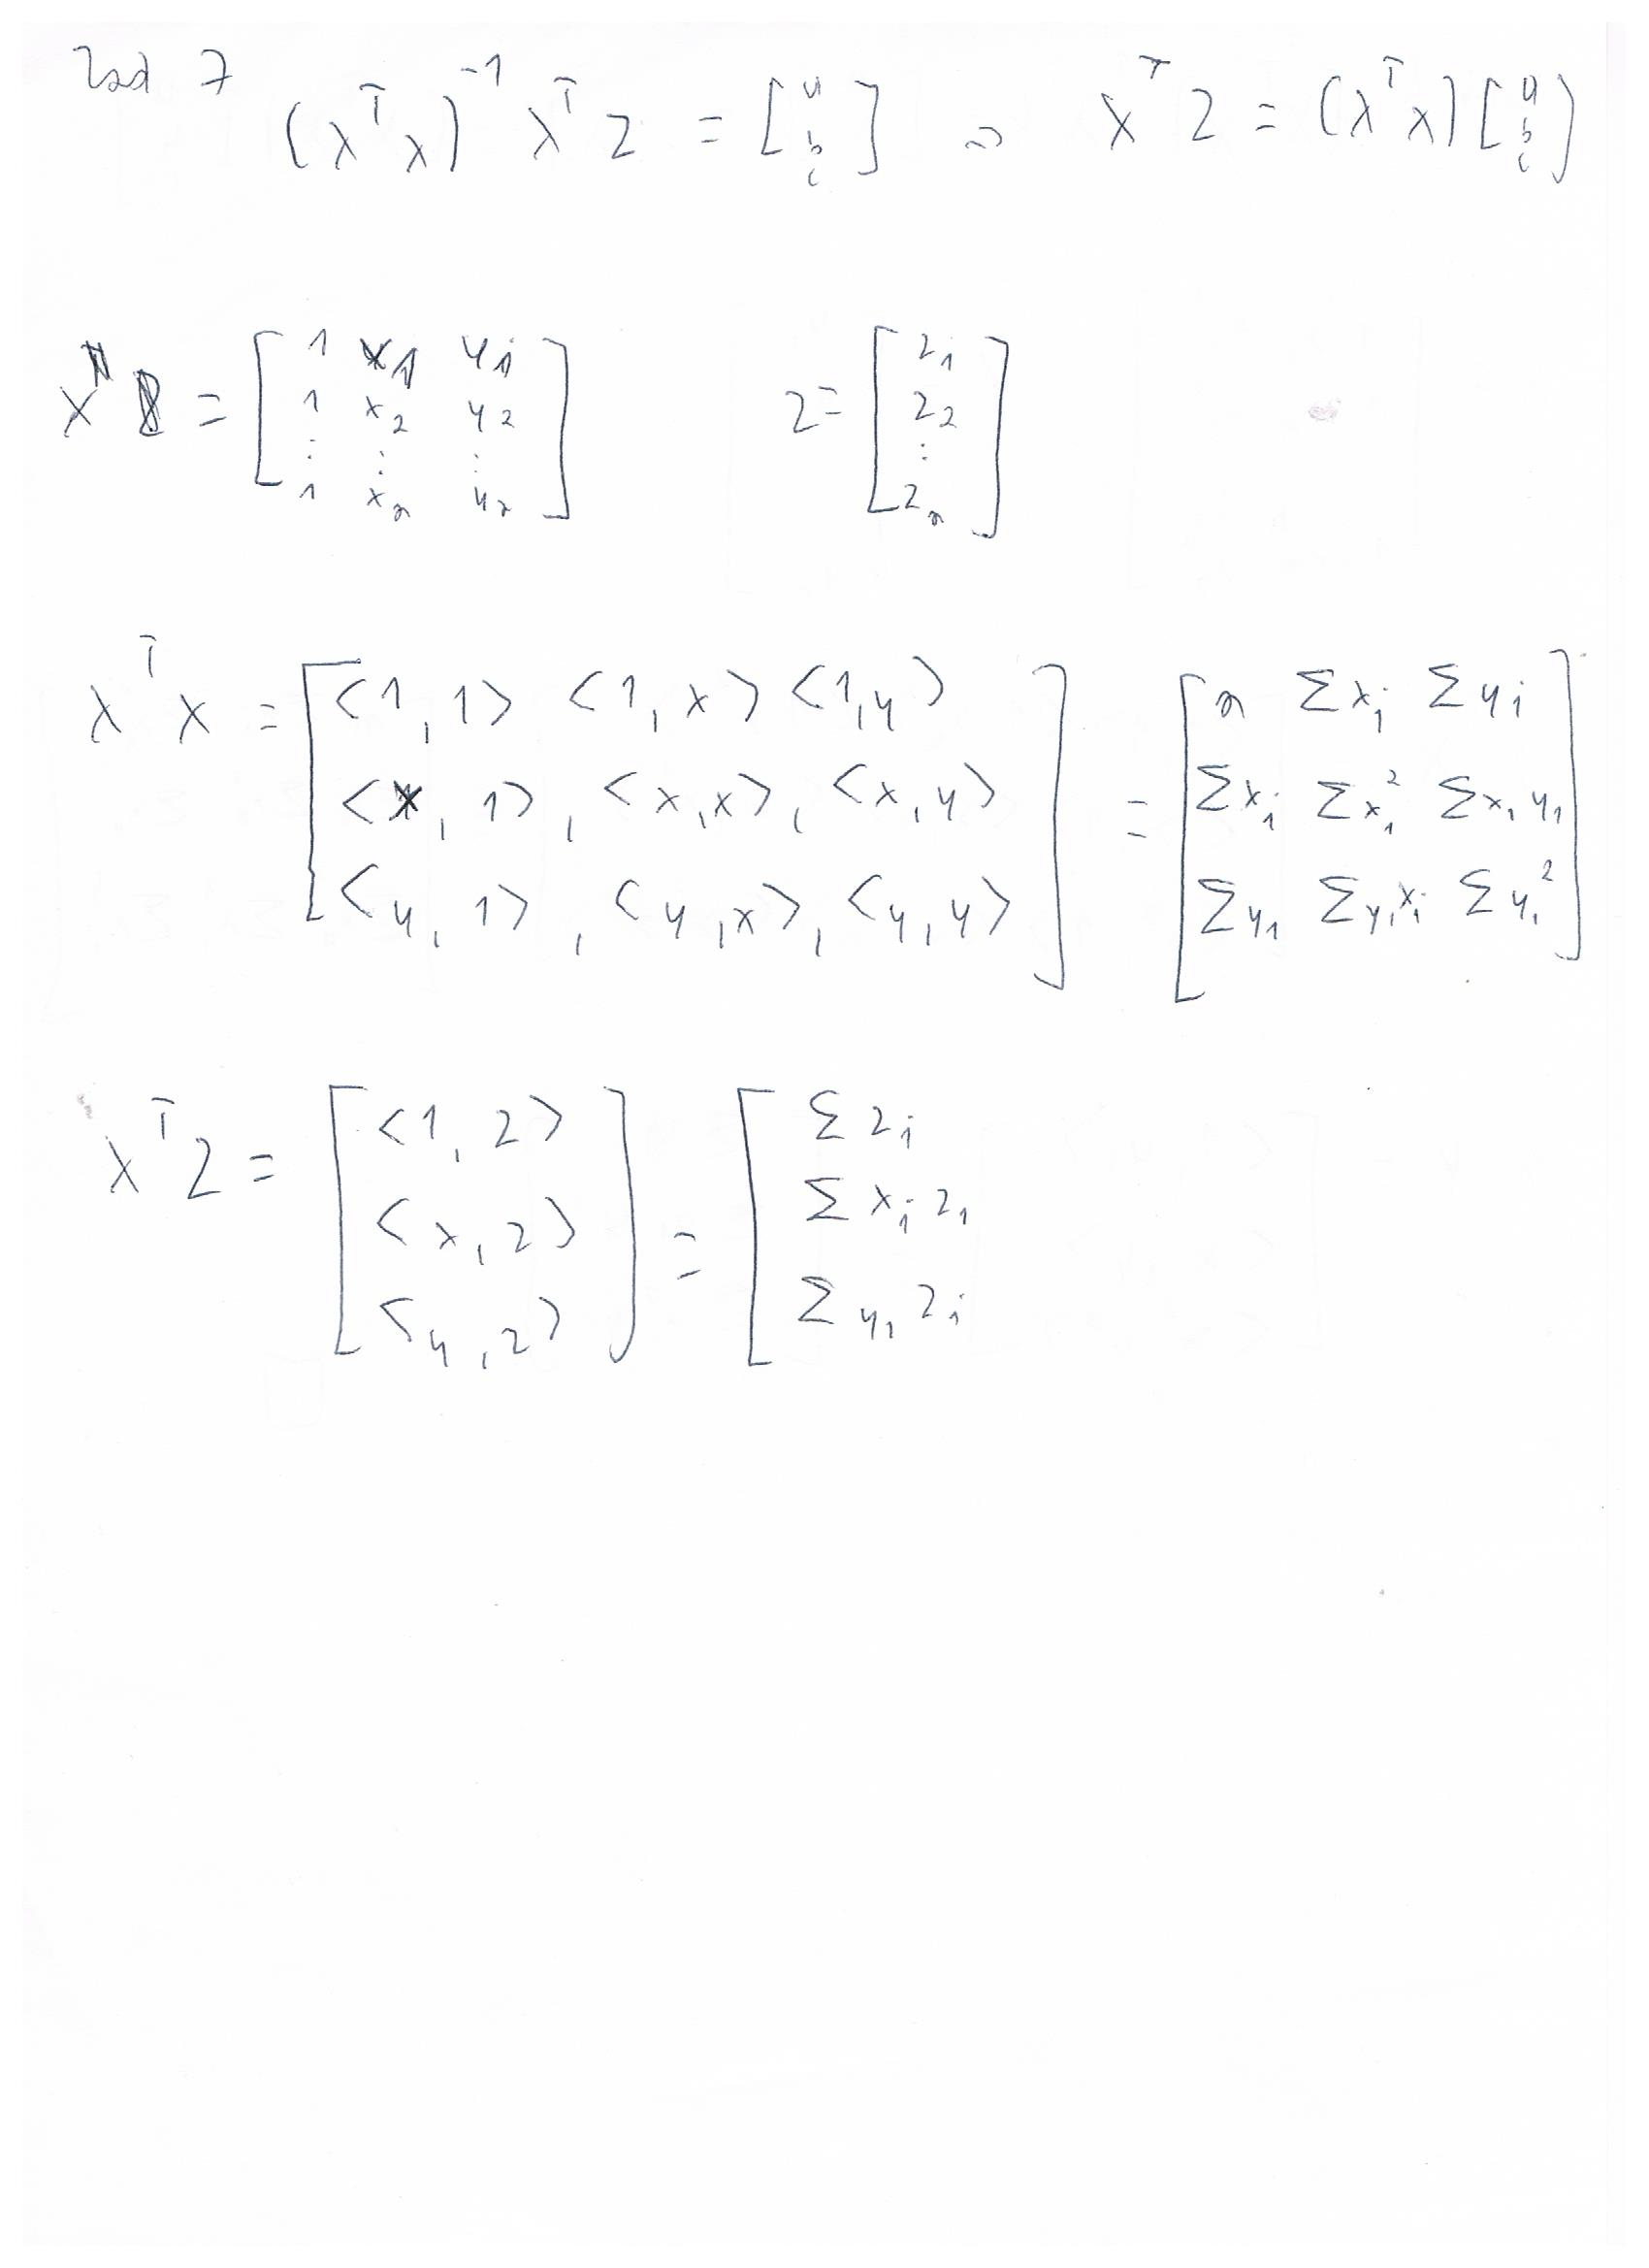 Zad 7 (X^T X)^{-1} X^T Z = [a b c] => X^T Z = (X^T X) [a b c]
X = [1 x_1 y_1
1 x_2 y_2
⋮ ⋮ ⋮
1 x_n y_n] Z = [z_1 z_2 ⋮ z_n]
X^T X = [<1,1> <1,x> <1,y>
<x,1>, <x,x>, <x,y>
<y,1>, <y,x>, <y,y>] = [n Σx_i Σy_i
Σx_i Σx_i^2 Σx_i y_i
Σy_i Σy_i x_i Σy_i^2]
X^T Z = [<1,z>
<x,z>
<y,z>] = [Σz_i
Σx_i z_i
Σy_i z_i